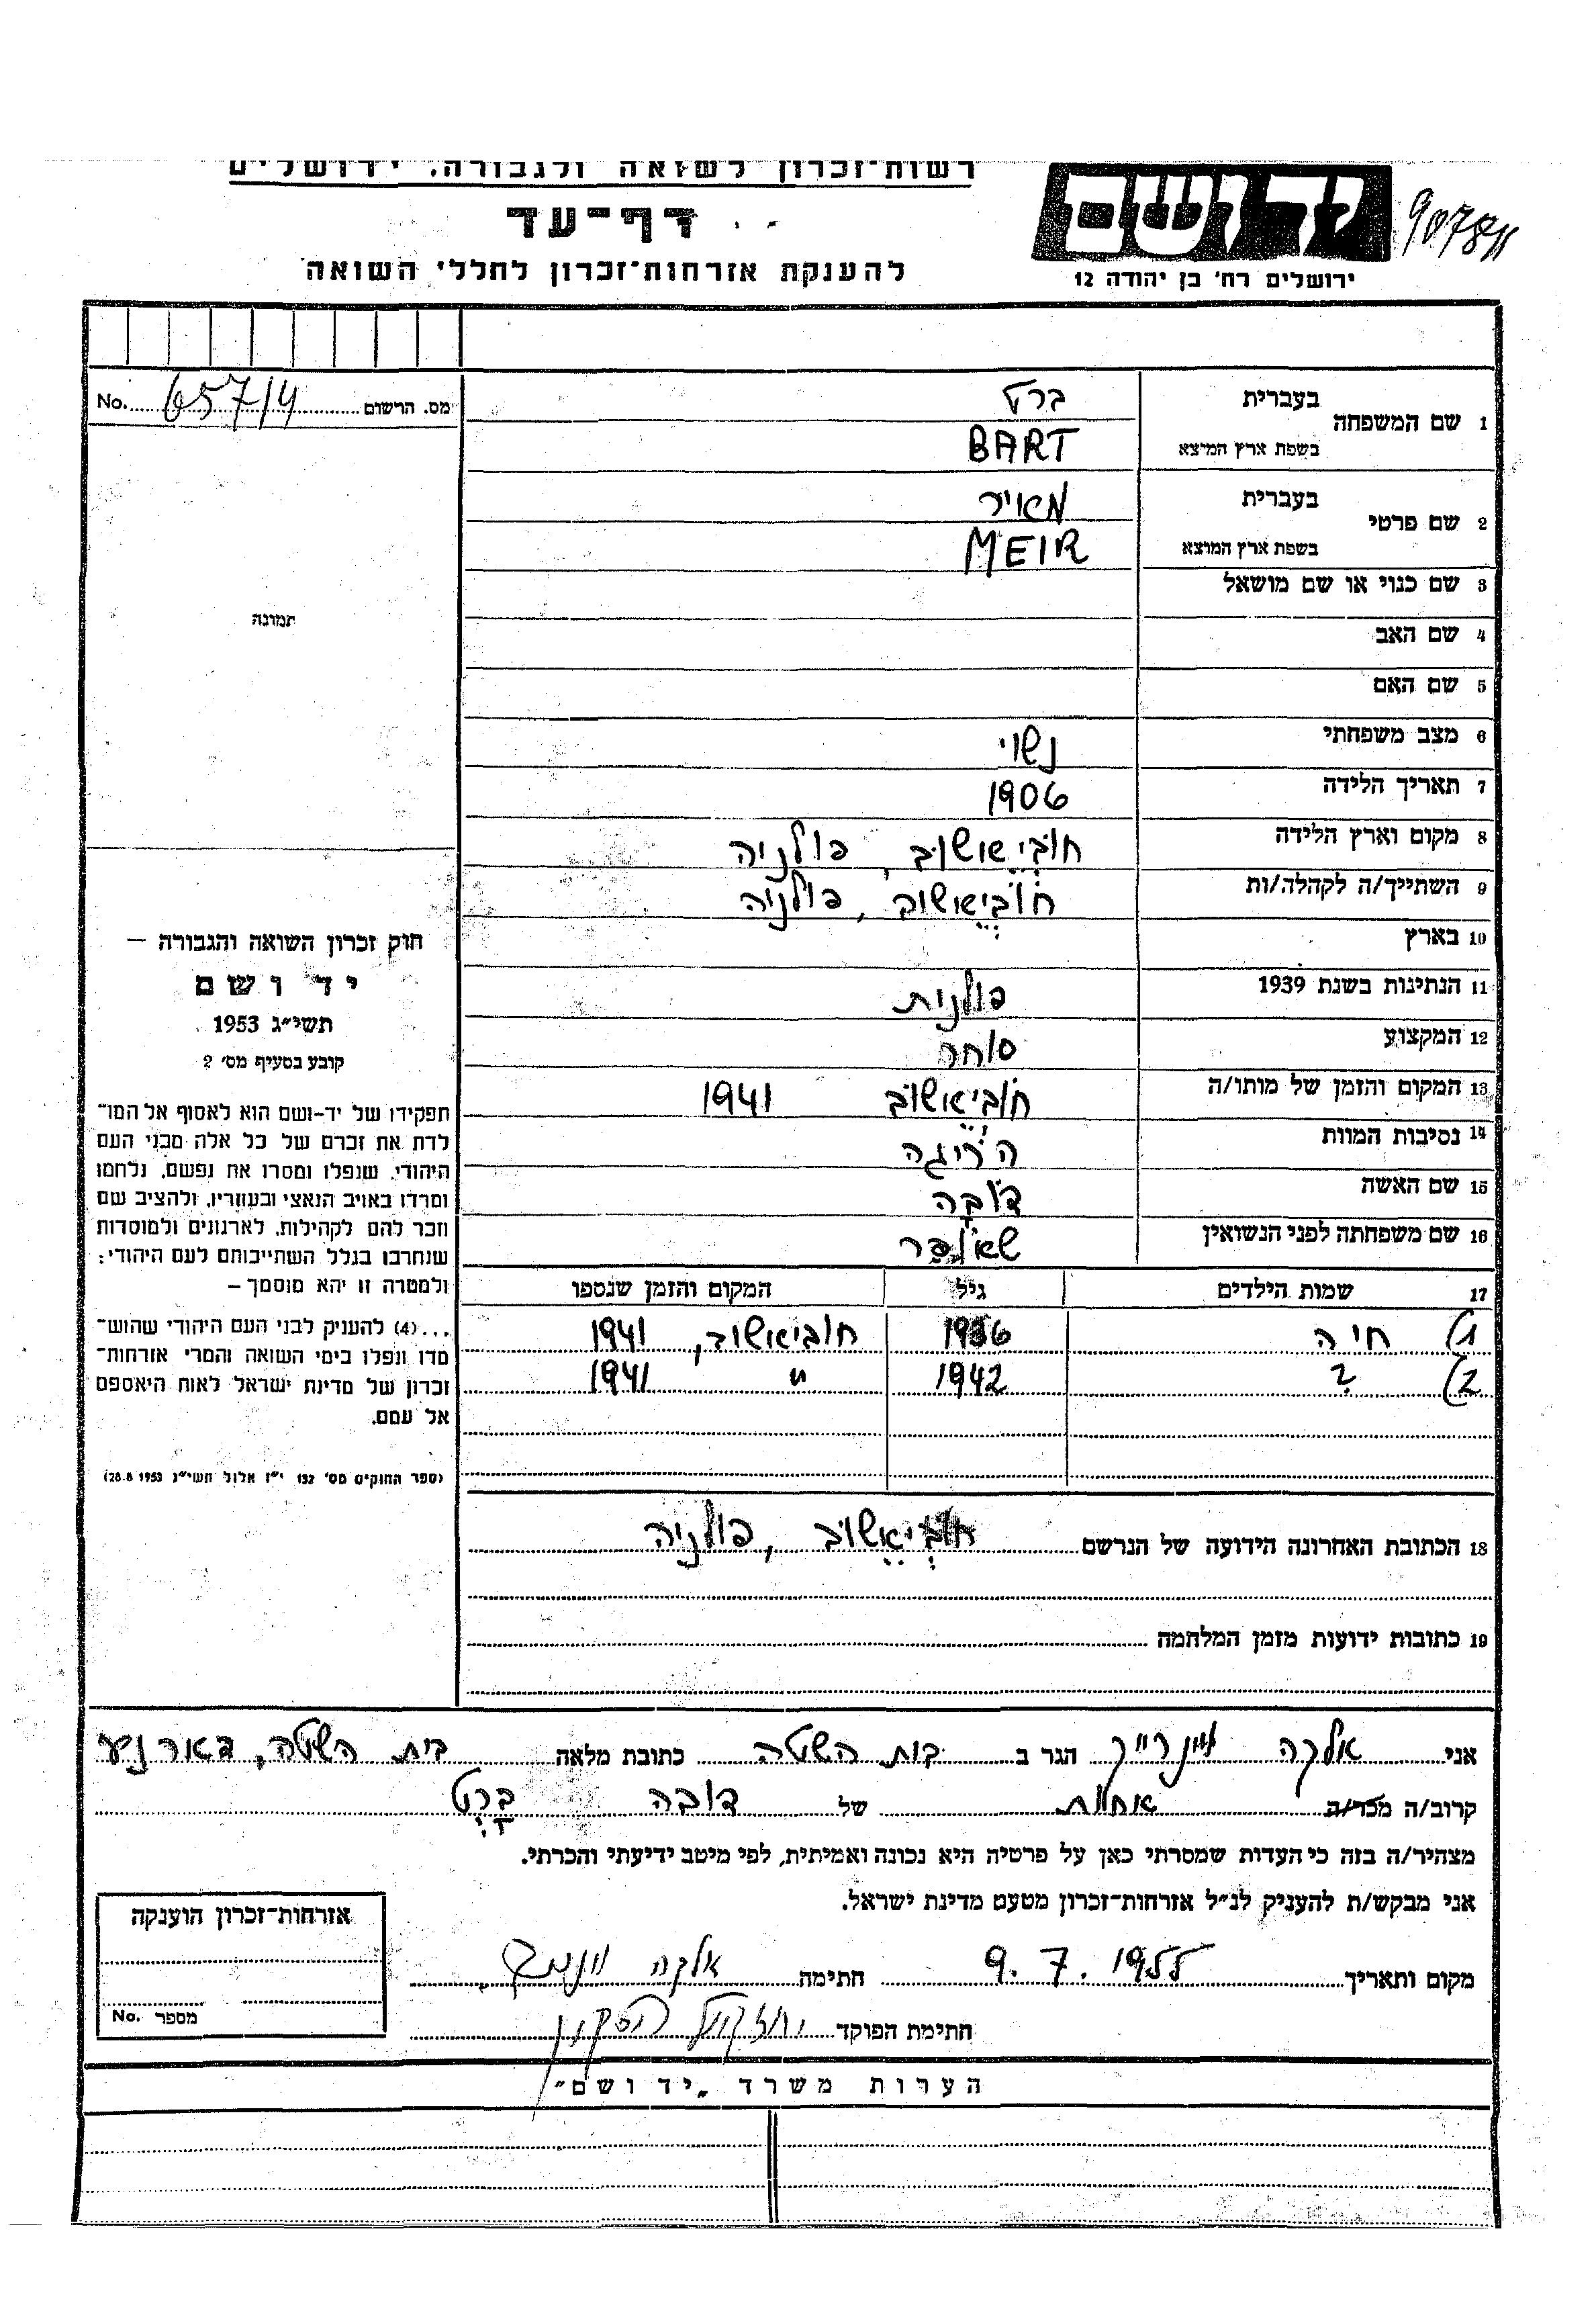 רשות־זכרון לשואה ולגבורה, ירושלים
יד ושם
90787
דף־עד
להענקת אזרחות־זכרון לחללי השואה
ירושלים רח' בן יהודה 12
מס. הרשום 657/4 No.
1 שם המשפחה בעברית ברט
בשפת ארץ המוצא BART
2 שם פרטי בעברית מאיר
בשפת ארץ המוצא MEIR
3 שם כנוי או שם מושאל
4 שם האב
5 שם האם
6 מצב משפחתי נשוי
7 תאריך הלידה 1906
8 מקום וארץ הלידה חוביאשוב, פולניה
9 השתייך/ה לקהלה/ות חוביאשוב, פולניה
10 בארץ
11 הנתינות בשנת 1939 פולנית
12 המקצוע סוחר
13 המקום והזמן של מותו/ה חוביאשוב 1941
14 נסיבות המוות הריגה
15 שם האשה דובה
16 שם משפחתה לפני הנשואין
17 שמות הילדים גיל המקום והזמן שנספו
1) חיה 1936 חוביאשוב, 1941
2) ? 1942 " 1941
18 הכתובת האחרונה הידועה של הנרשם חוביאשוב, פולניה
19 כתובות ידועות מזמן המלחמה
תמונה
חוק זכרון השואה והגבורה —
יד ושם
תשי"ג 1953
קובע בסעיף מס' 2
תפקידו של יד-ושם הוא לאסוף אל המו־
לדת את זכרם של כל אלה מבני העם
היהודי, שנפלו ומסרו את נפשם, נלחמו
ומרדו באויב הנאצי ובעוזריו, ולהציב שם
וזכר להם לקהילות, לארגונים ולמוסדות
שנחרבו בגלל השתייכותם לעם היהודי;
ולמטרה זו יהא מוסמך —
...(4) להענִיק לבני העם היהודי שהוש־
מדו ונפלו בימי השואה והמרי אזרחות־
זכרון של מדינת ישראל לאות היאספם
אל עמם.
(ספר החוקים מס' 132 י"ז אלול תשי"ג 28.8.1953)
אני אלקה ויינרייך הגר ב בית השטה כתובת מלאה בית השטה,
קרוב/ה מכר/ה אחות של דובה ברט
מצהיר/ה בזה כי העדות שמסרתי כאן על פרטיה היא נכונה ואמיתית, לפי מיטב ידיעתי והכרתי.
אני מבקש/ת להעניק לנ"ל אזרחות־זכרון מטעם מדינת ישראל.
מקום ותאריך 9.7.1955 חתימה אלקה
חתימת הפוקד יחזקאל
אזרחות־זכרון הוענקה
מספר No.
הערות משרד „יד ושם"